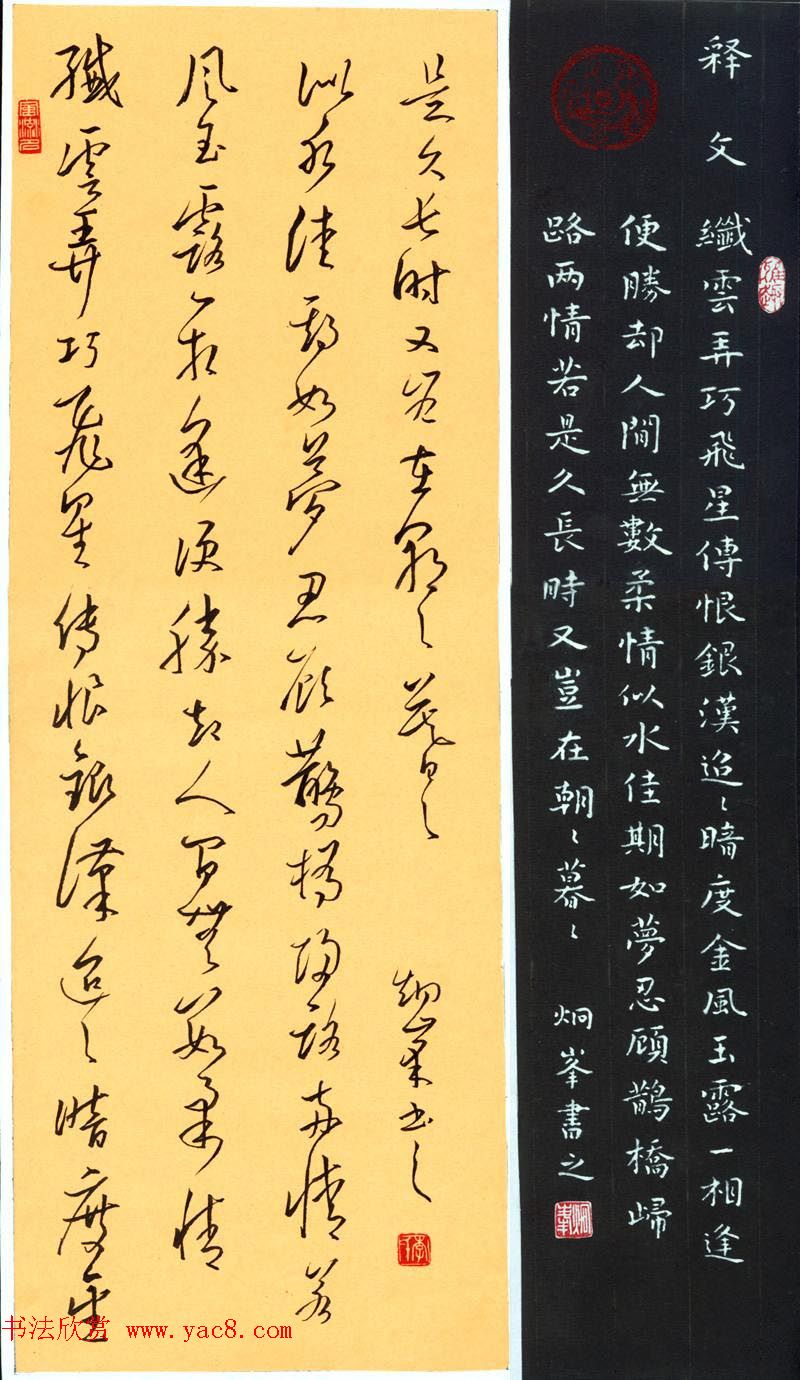 纖雲弄巧飛星傳恨銀漢迢々暗度金
風玉露一相逢便勝却人間無數柔情
似水佳期如夢忍顧鵲橋歸路两情若
是久長时又豈在朝々暮々 炯峯書之
释文 纖雲弄巧飛星傳恨銀漢迢々暗度金風玉露一相逢
便勝却人間無數柔情似水佳期如夢忍顧鵲橋歸
路两情若是久長時又豈在朝々暮々 炯峯書之
书法欣赏 www.yac8.com